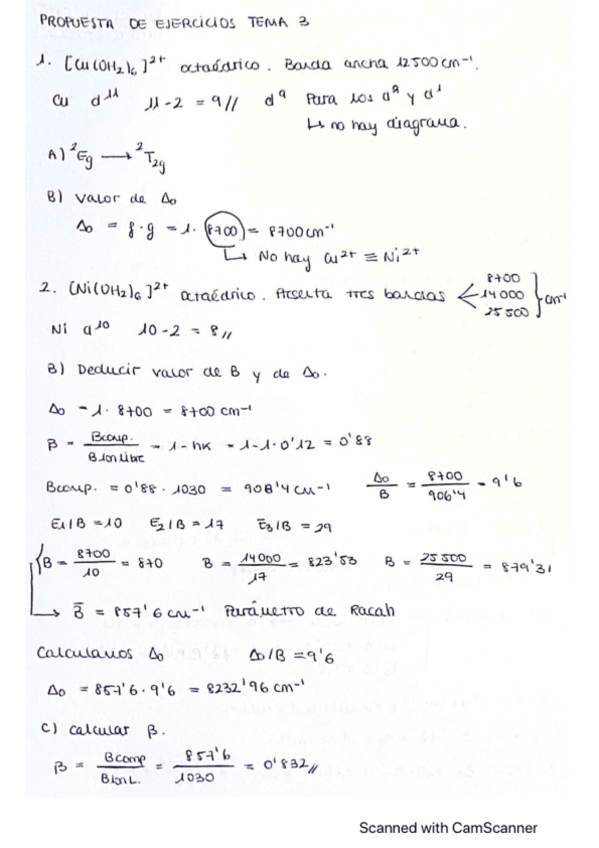 PROPUESTA DE EJERCICIOS TEMA 3
1. [Cu(OH₂)₆]²⁺ octaédrico. Banda ancha 12500 cm⁻¹.
Cu d¹¹ 11-2 = 9// d⁹ Para los d⁹ y d¹
↳ no hay diagrama.
A) ²Eg → ²T₂g
B) Valor de Δo
Δo = f·g = 1·8700 = 8700 cm⁻¹
↳ No hay Cu²⁺ ≡ Ni²⁺
2. [Ni(OH₂)₆]²⁺ octaédrico. Presenta tres bandas 8700 14000 25500 } cm⁻¹
Ni d¹⁰ 10-2 = 8//
B) Deducir valor de B y de Δo.
Δo = 1·8700 = 8700 cm⁻¹
β = Bcomp. / B ion libre = 1-hK = 1-1·0'12 = 0'88
Bcomp. = 0'88·1030 = 908'4 cm⁻¹ Δo/B = 8700/906'4 = 9'6
E₁/B = 10 E₂/B = 17 E₃/B = 29
B = 8700/10 = 870 B = 14000/17 = 823'53 B = 25500/29 = 879'31
→ B̄ = 857'6 cm⁻¹ Parámetro de Racah
Calculamos Δo Δo/B = 9'6
Δo = 857'6·9'6 = 8232'96 cm⁻¹
C) calcular β.
β = Bcomp / B ion L. = 857'6 / 1030 = 0'832//
Scanned with CamScanner